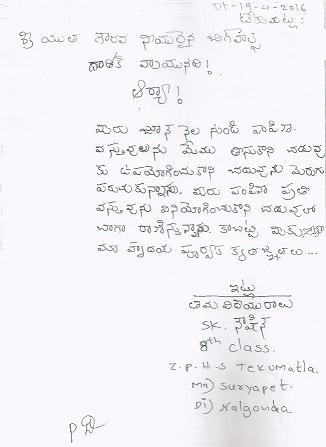 Dt-19-4-2016
టేకుమట్ల:
శ్రీ యుత గౌరవ నాయులైన బిగ్‌హెల్ప్
వ్రాయునది!
ఆర్యా!
మీరు జూన్ నెల నుండి పంపిన
వస్తువులను మేము తీసుకొని చదువు
కు ఉపయోగించుకొని చదువును మెరుగు
పరుచుకున్నాను. మీరు పంపిన ప్రతి
వస్తువును వినియోగించుకొని చదువులో
బాగా రాణిస్తున్నాను కాబట్టి మీకు
మా హృదయ పూర్వక కృతజ్ఞతలు...
ఇట్లు
తమ విధేయురాలు
SK. నౌషీన్
8th class.
Z.P.H.S Tekumatla.
Ma) Suryapet.
Di) Nalgonda.